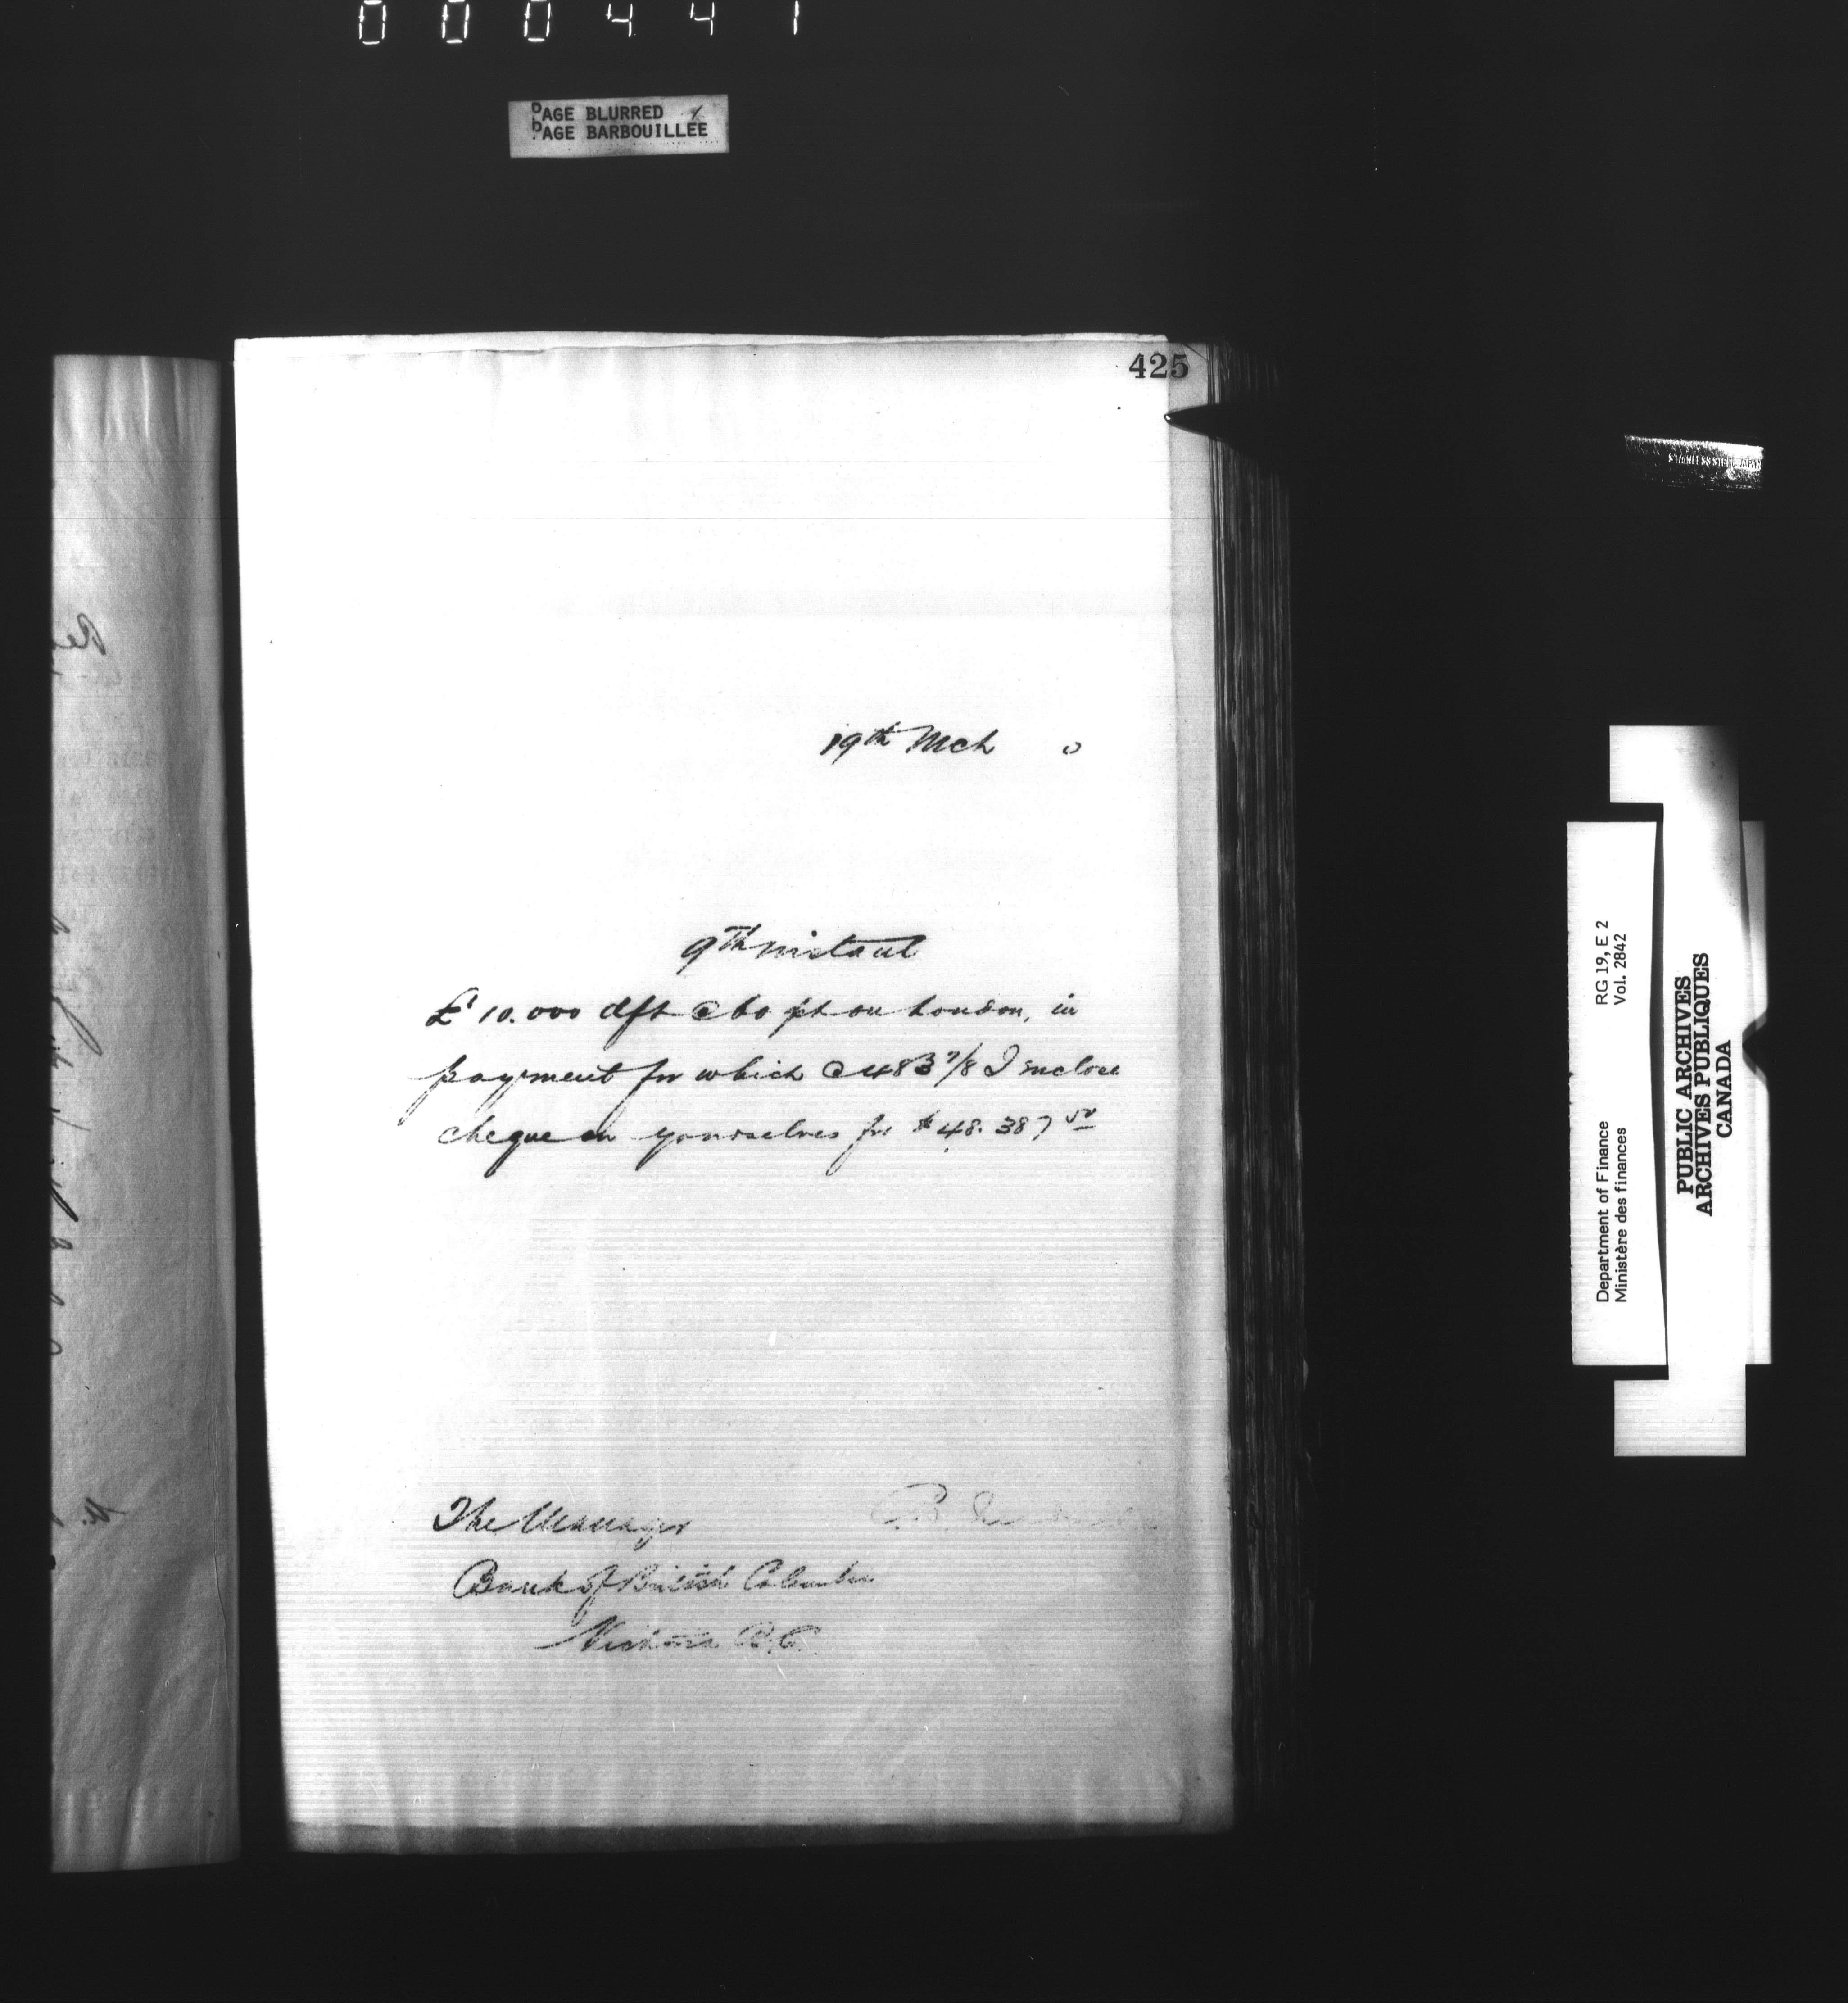 000441
PAGE BLURRED
PAGE BARBOUILLÉE
425
19th Mch 0
9th instant
£ 10.000 dft @ 60 on London, in
payment for which @ 483 7/8 I enclose
cheque on yourselves for $48.387 50
The Manager
Bank of British Columbia
Victoria B.C.
Department of Finance RG 19, E 2
Ministère des finances Vol. 2842
PUBLIC ARCHIVES
ARCHIVES PUBLIQUES
CANADA